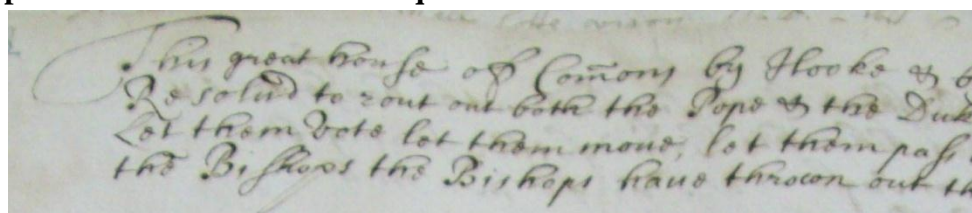 This great house of Com̄ons by Hooke &
Resolūd to rout out both the Pope & the Duk
Let them Vote let them moue, let them pass
the Bishops the Bishops haue throwon out th